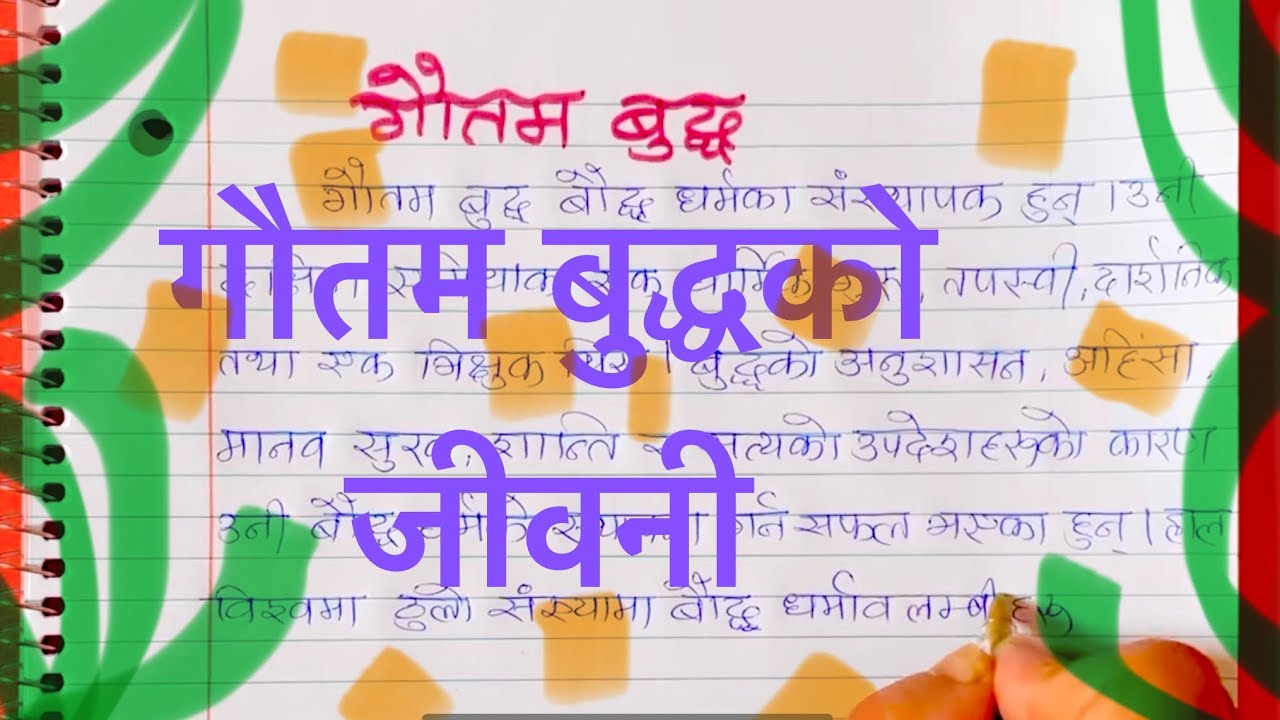 गौतम बुद्ध
गौतम बुद्ध बौद्ध धर्मका संस्थापक हुन् । उनी
गौतम बुद्धको
एक , तपस्वी, दार्शनिक
तथा एक भिक्षुक थिए । बुद्धको अनुशासन, अहिंसा,
मानव सुख, शान्ति र सत्यको उपदेशहरूको कारण
जीवनी
उनी बौद्ध गर्न सफल भएका हुन् । हाल
विश्वमा ठुलो संख्यामा बौद्ध धर्मावलम्बीहरू